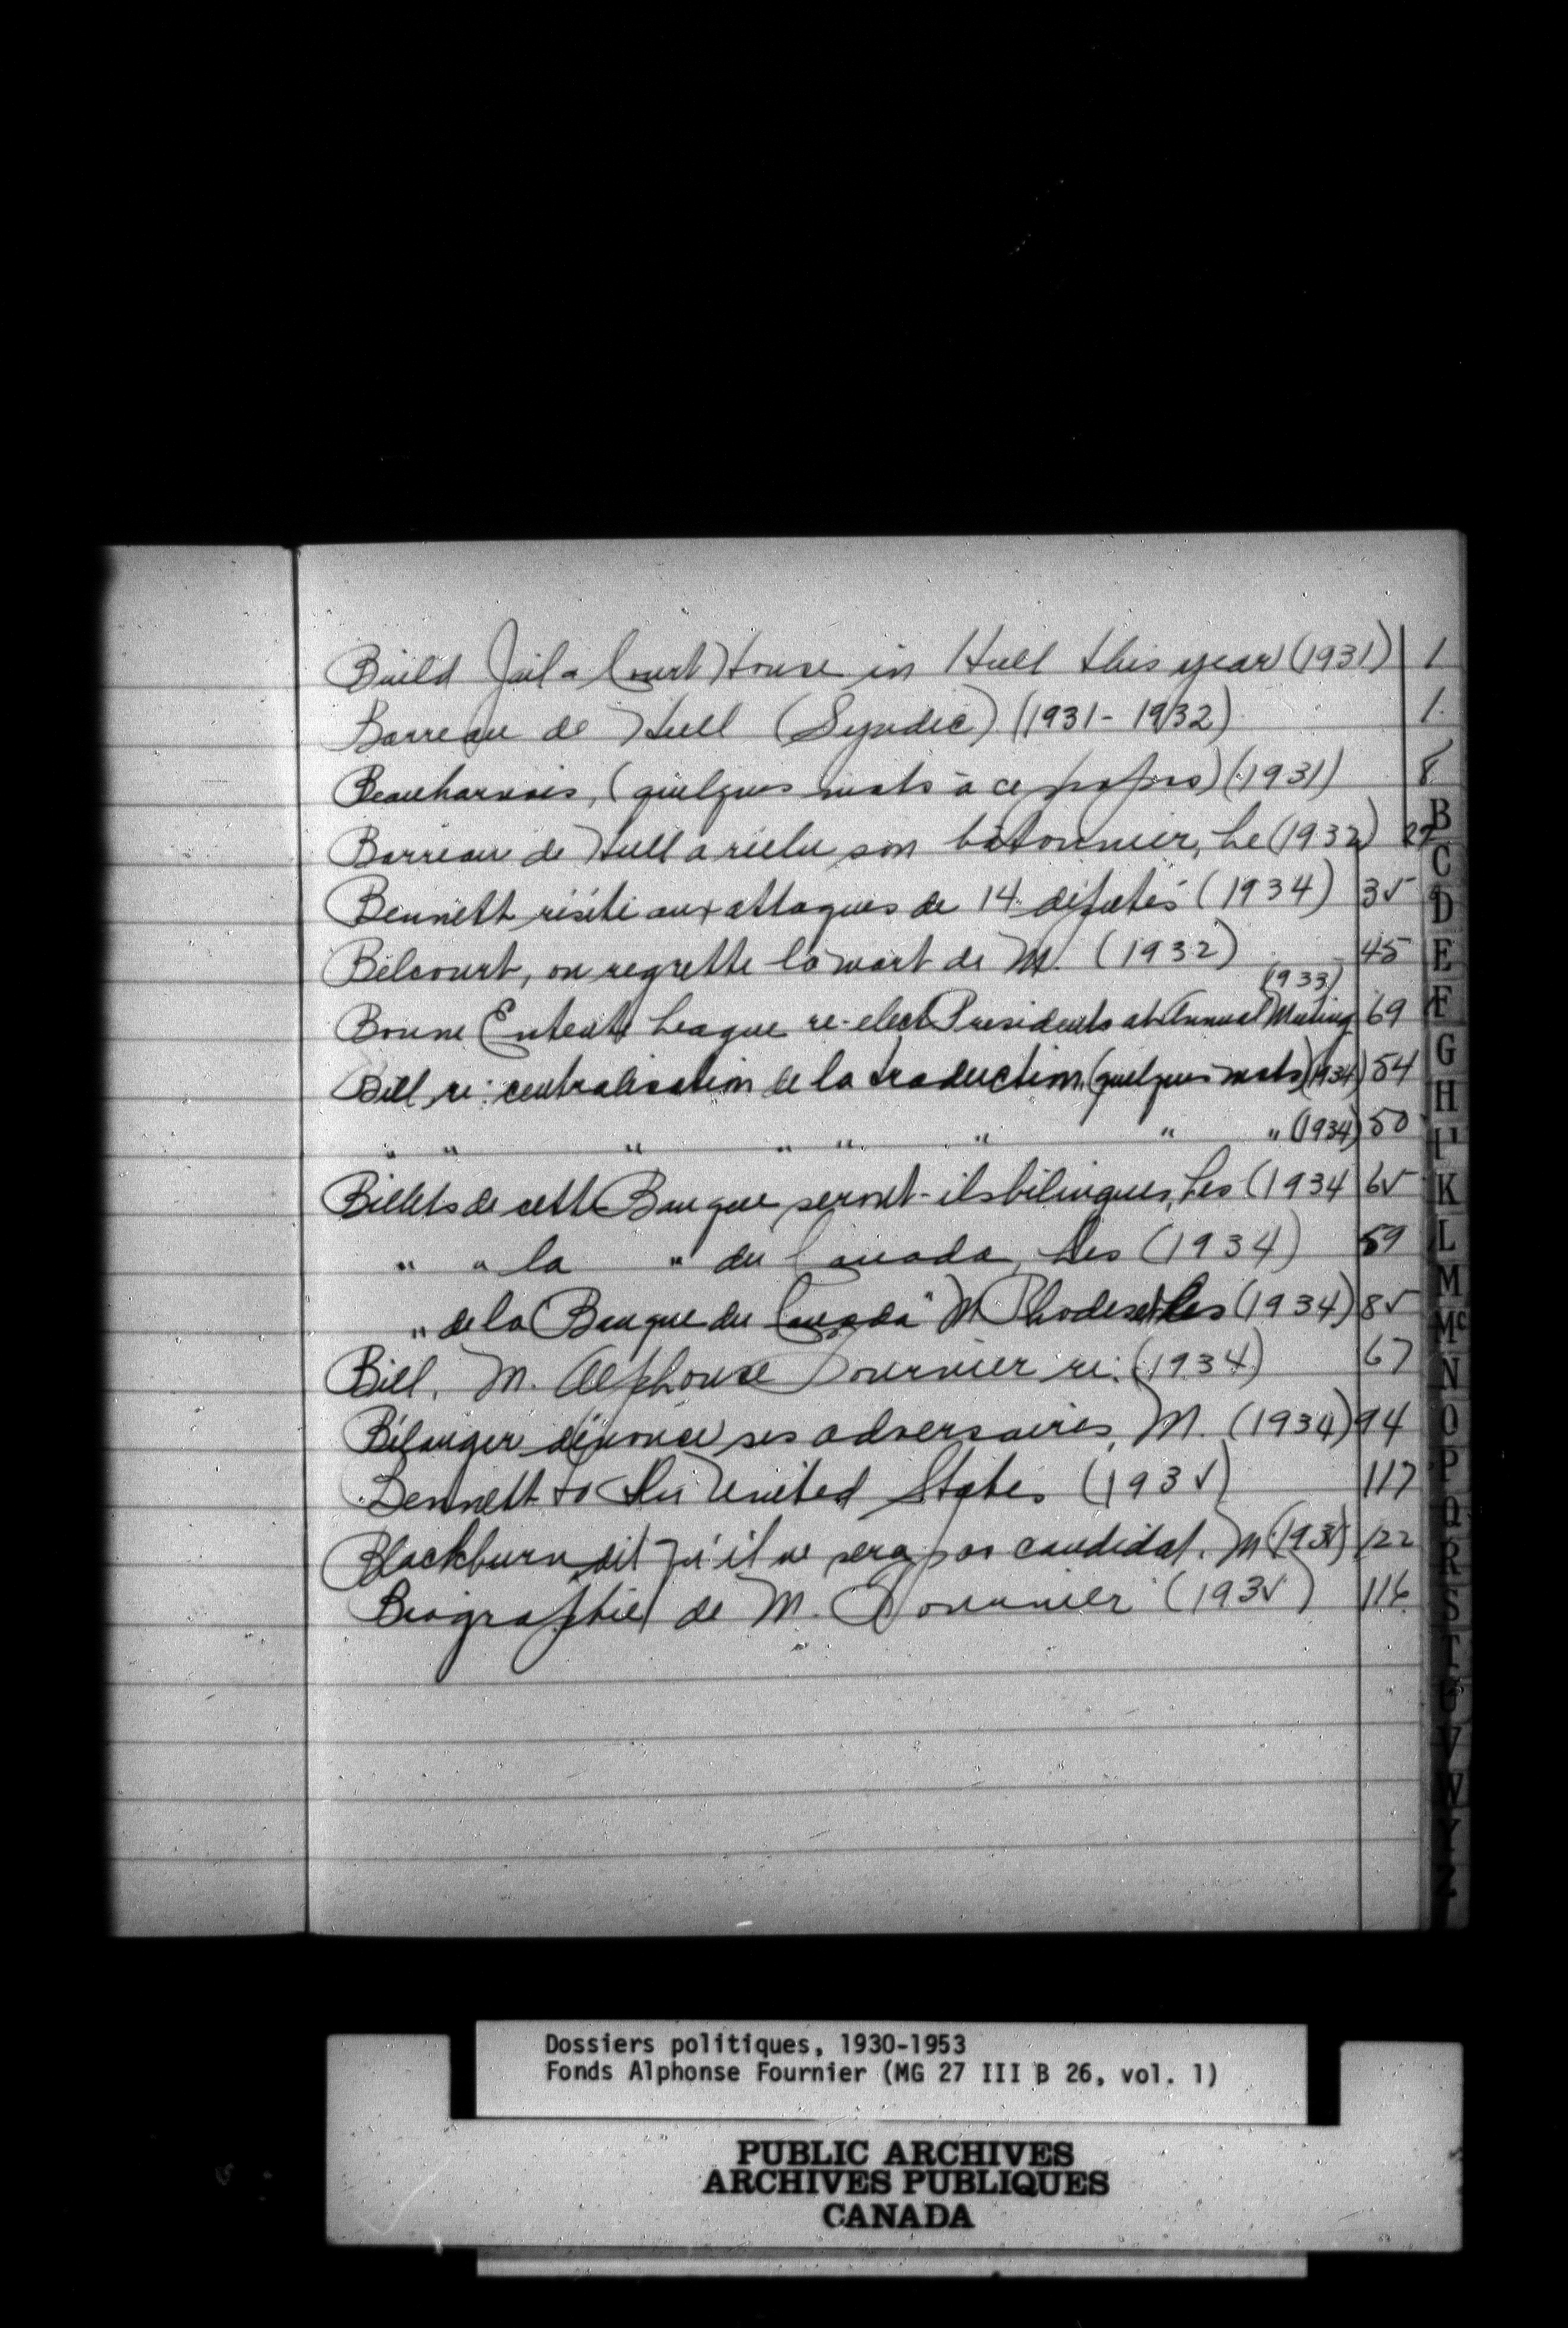 Build Jail & Court House in Hull this year (1931) 1
Barreau de Hull (Syndic) (1931-1932) 1
Beauharnois, (quelques mots à ce propos) (1931) 8
Barreau de Hull a réélu son bâtonnier, Le (1932)
Bennett résiste aux attaques de 14 députés (1934) 35
Belcourt, on regrette la mort de M. (1932) 45
(1933)
Bonne Entente League re-elect Presidents at Annual Meeting 69
Bill re: centralisation de la traduction (quelques mots) (1934) 54
" " " " " " " " (1934) 50
Billets de cette Banque seront-ils bilingues, Les (1934 65
" " la " du Canada, Les (1934) 59
" de la Banque du Canada" M Rhodes et les (1934) 85
Bill, M. Alphonse Fournier re: (1934) 67
Bélanger dénonce ses adversaires, M. (1934) 94
Bennett to the United States (1935) 117
Blackburn dit qu'il ne sera pas candidat, M (1935) 122
Biographie de M. Fournier (1935) 116
B
C
D
E
F
G
H
I
K
L
M
Mc
N
O
P
Q
R
S
T
U
V
W
Y
Z
Dossiers politiques, 1930-1953
Fonds Alphonse Fournier (MG 27 III B 26, vol. 1)
PUBLIC ARCHIVES
ARCHIVES PUBLIQUES
CANADA